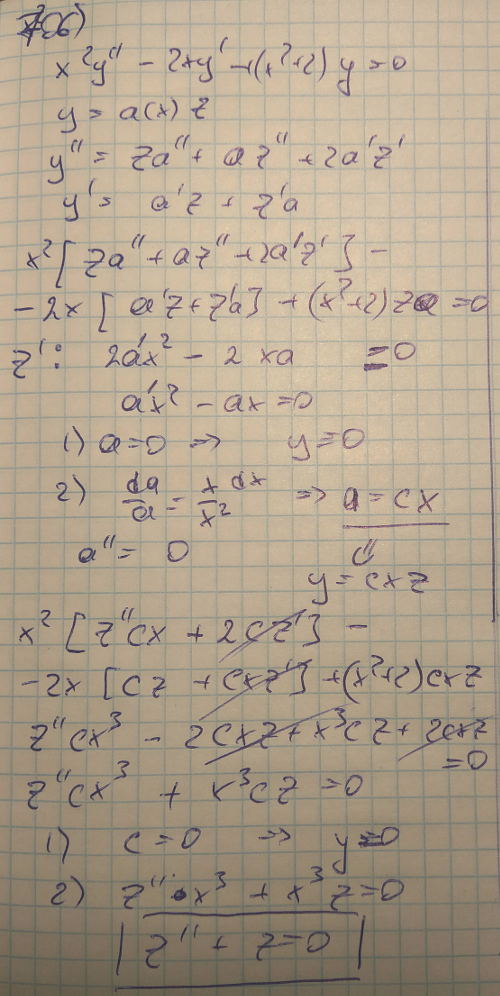 706)
x²y'' - 2xy' + (x²+2) y = 0
y = a(x) z
y'' = za'' + az'' + 2a'z'
y' = a'z + z'a
x² [ za'' + az'' + 2a'z' ] -
- 2x [ a'z + z'a ] + (x²+2) za = 0
z' : 2a'x² - 2xa = 0
a'x² - ax = 0
1) a = 0 => y = 0
2) da/a = x/x² dx => a = cx
a'' = 0
y = cxz
x² [ z''cx + 2cz' ] -
- 2x [ cz + cxz' ] + (x²+2) cxz
z''cx³ - 2cxz + x³cz + 2cxz = 0
z''cx³ + x³cz = 0
1) c = 0 => y = 0
2) z'' · x³ + x³z = 0
z'' + z = 0